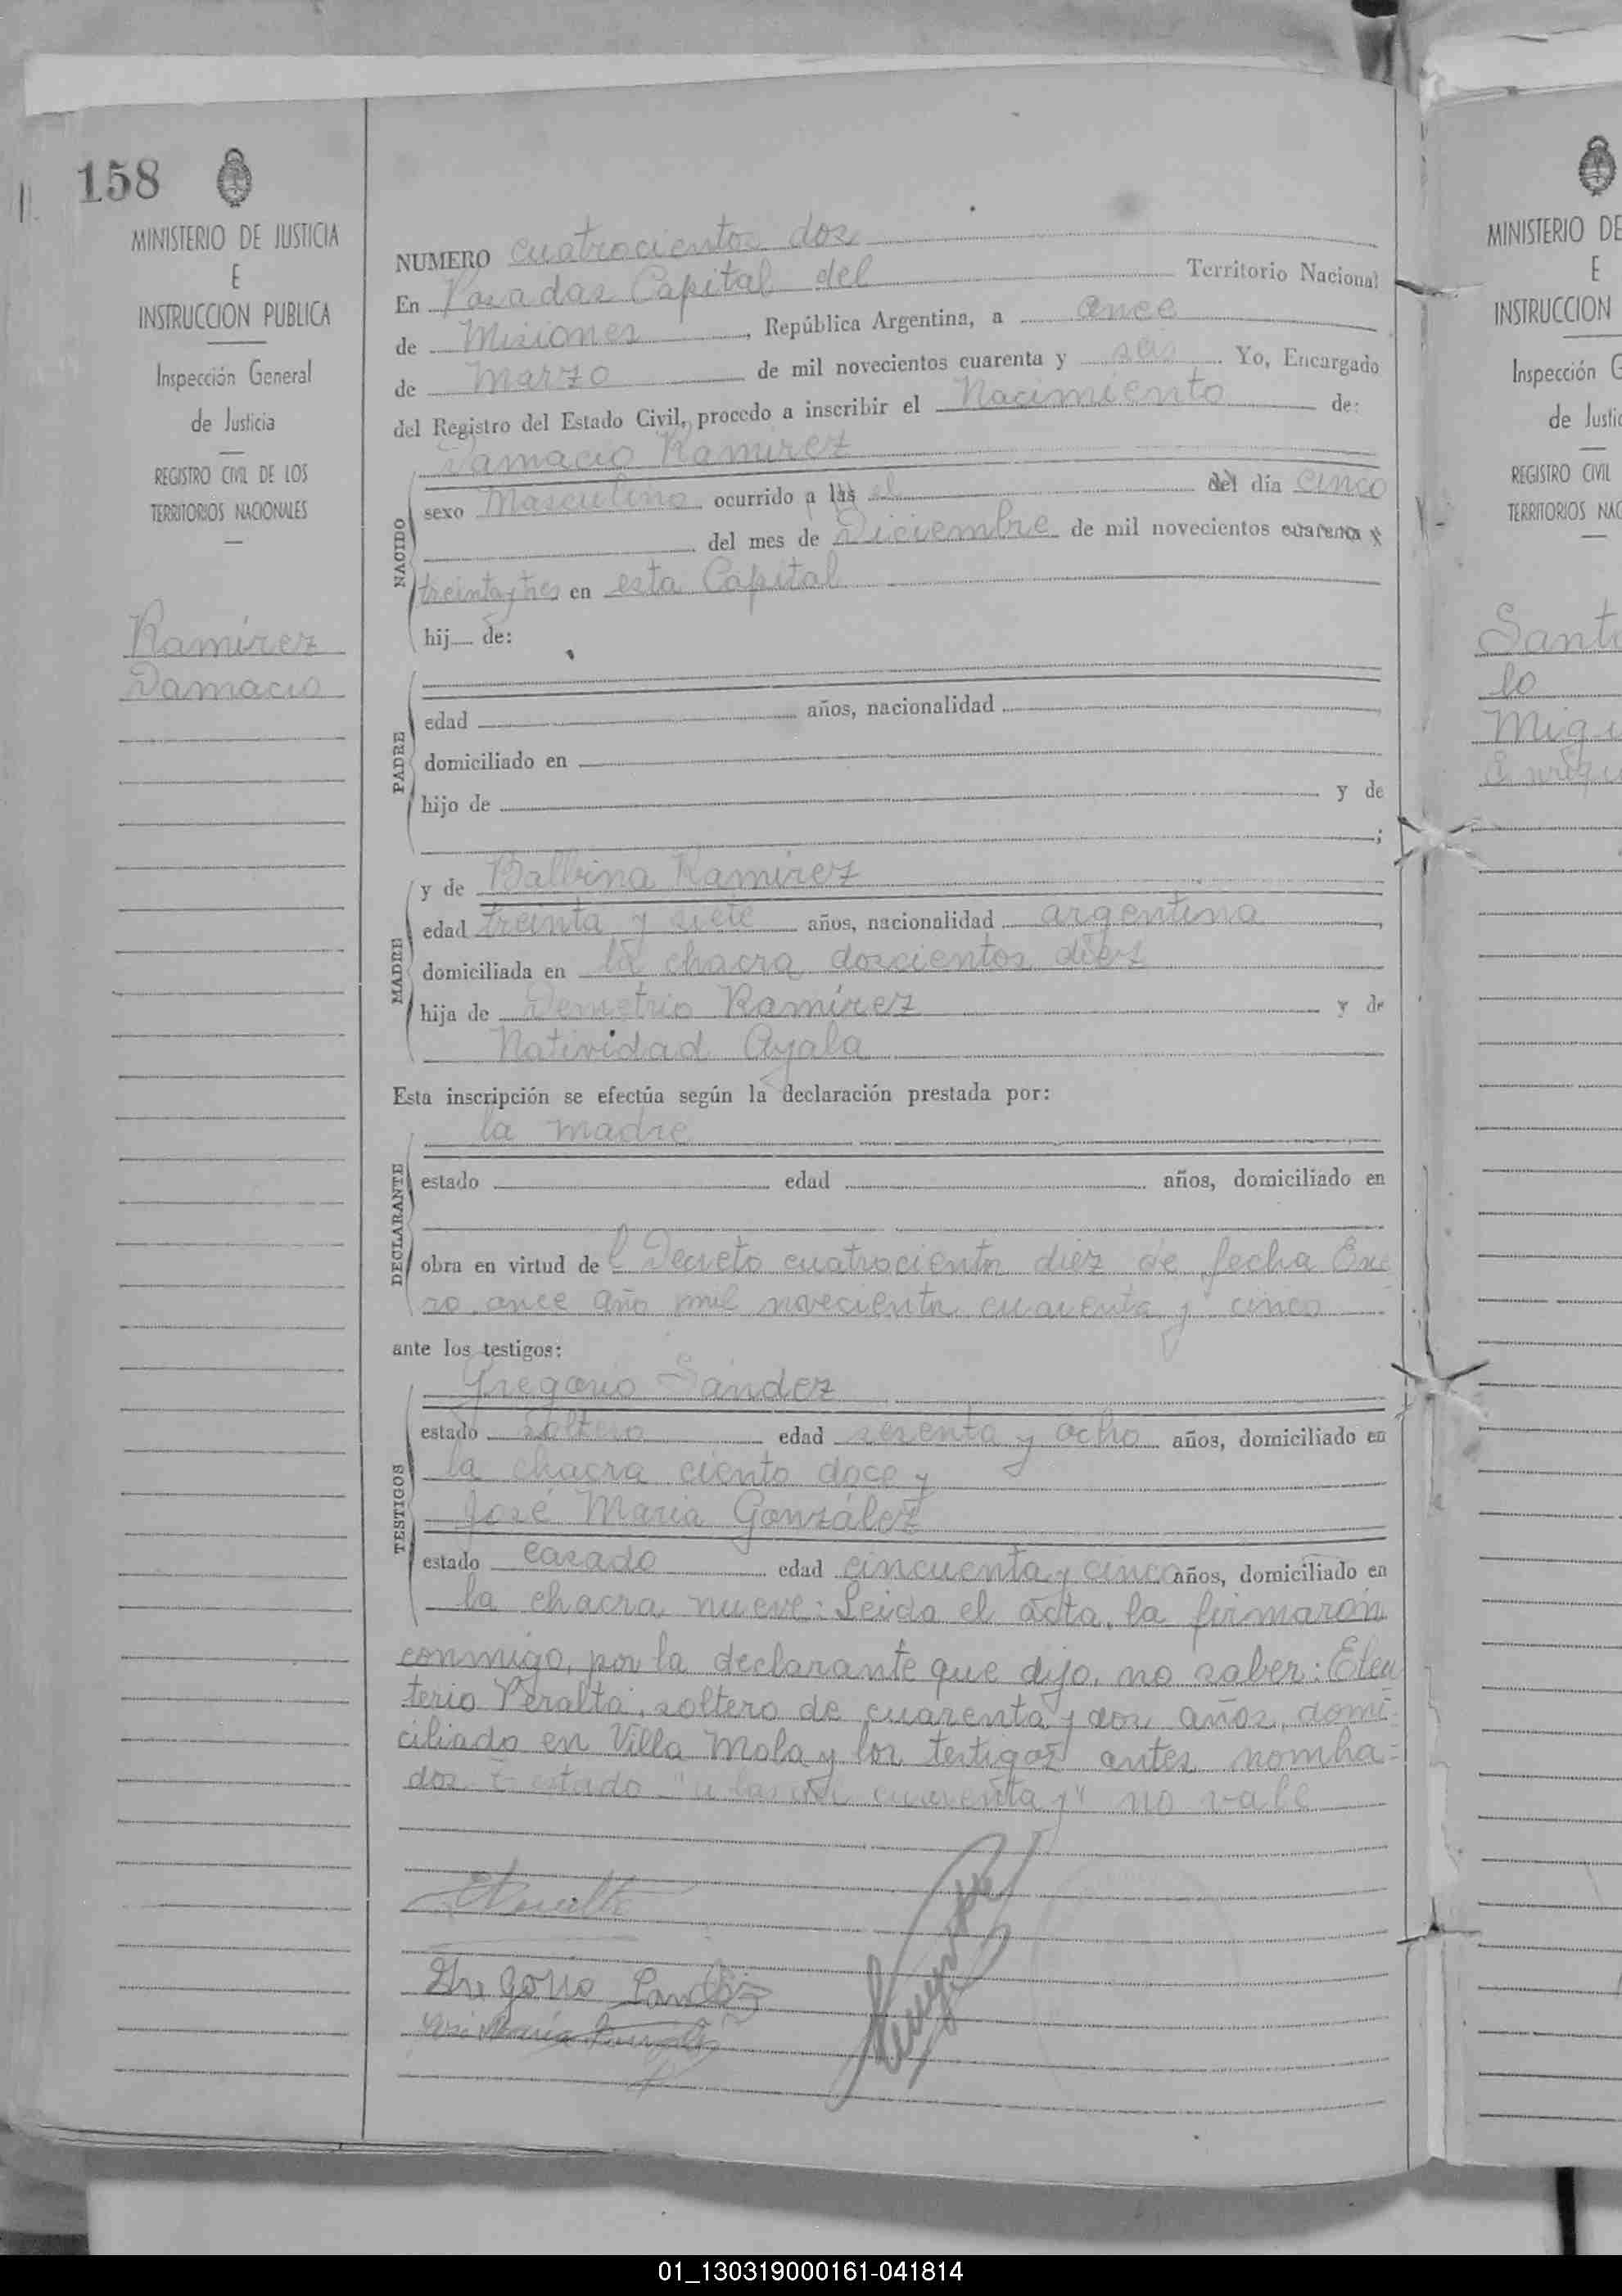 158
MINISTERIO DE JUSTICIA
E
INSTRUCCION PUBLICA
Inspección General
de Justicia
REGISTRO CIVIL DE LOS
TERRITORIOS NACIONALES
Ramírez
Damacio
NUMERO cuatrocientos dos
En Posadas Capital del Territorio Nacional
de Misiones, República Argentina, a once
de Marzo de mil novecientos cuarenta y seis Yo, Encargado
del Registro del Estado Civil, procedo a inscribir el Nacimiento de:
Damacio Ramírez
NACIDO
sexo Masculino ocurrido a las el del día cinco
del mes de Diciembre de mil novecientos cuarenta y
treinta y tres en esta Capital
hij de:
PADRE
edad años, nacionalidad
domiciliado en
hijo de y de
;
MADRE
y de Balbina Ramírez
edad treinta y siete años, nacionalidad argentina,
domiciliada en la chacra doscientos diez
hija de Demetrio Ramírez y de
Natividad Ayala
Esta inscripción se efectúa según la declaración prestada por:
la madre
DECLARANTE
estado edad años, domiciliado en
obra en virtud de l Decreto cuatrocientos diez de fecha Ene
ro once año mil novecientos cuarenta y cinco
ante los testigos:
TESTIGOS
Gregorio Sández
estado soltero edad sesenta y ocho años, domiciliado en
la chacra ciento doce y
José María González
estado casado edad cincuenta y cinco años, domiciliado en
la chacra nueve: Leida el acta, la firmaron
conmigo, por la declarante que dijo, no saber: Eleu
terio Peralta, soltero de cuarenta y dos años, domi-
ciliado en Villa Mola y los testigos antes nombra=
dos. estado cuarenta y" no vale
Gregorio Sandez
José María
MINISTERIO DE
E
INSTRUCCION
Inspección G
de Justic
REGISTRO CIVIL
TERRITORIOS NAC
Santi
lo
Migu
01_130319000161-041814